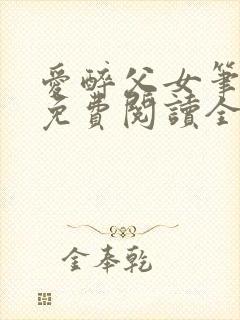 愛醉父女筆
免費閱讀全
金奉乾